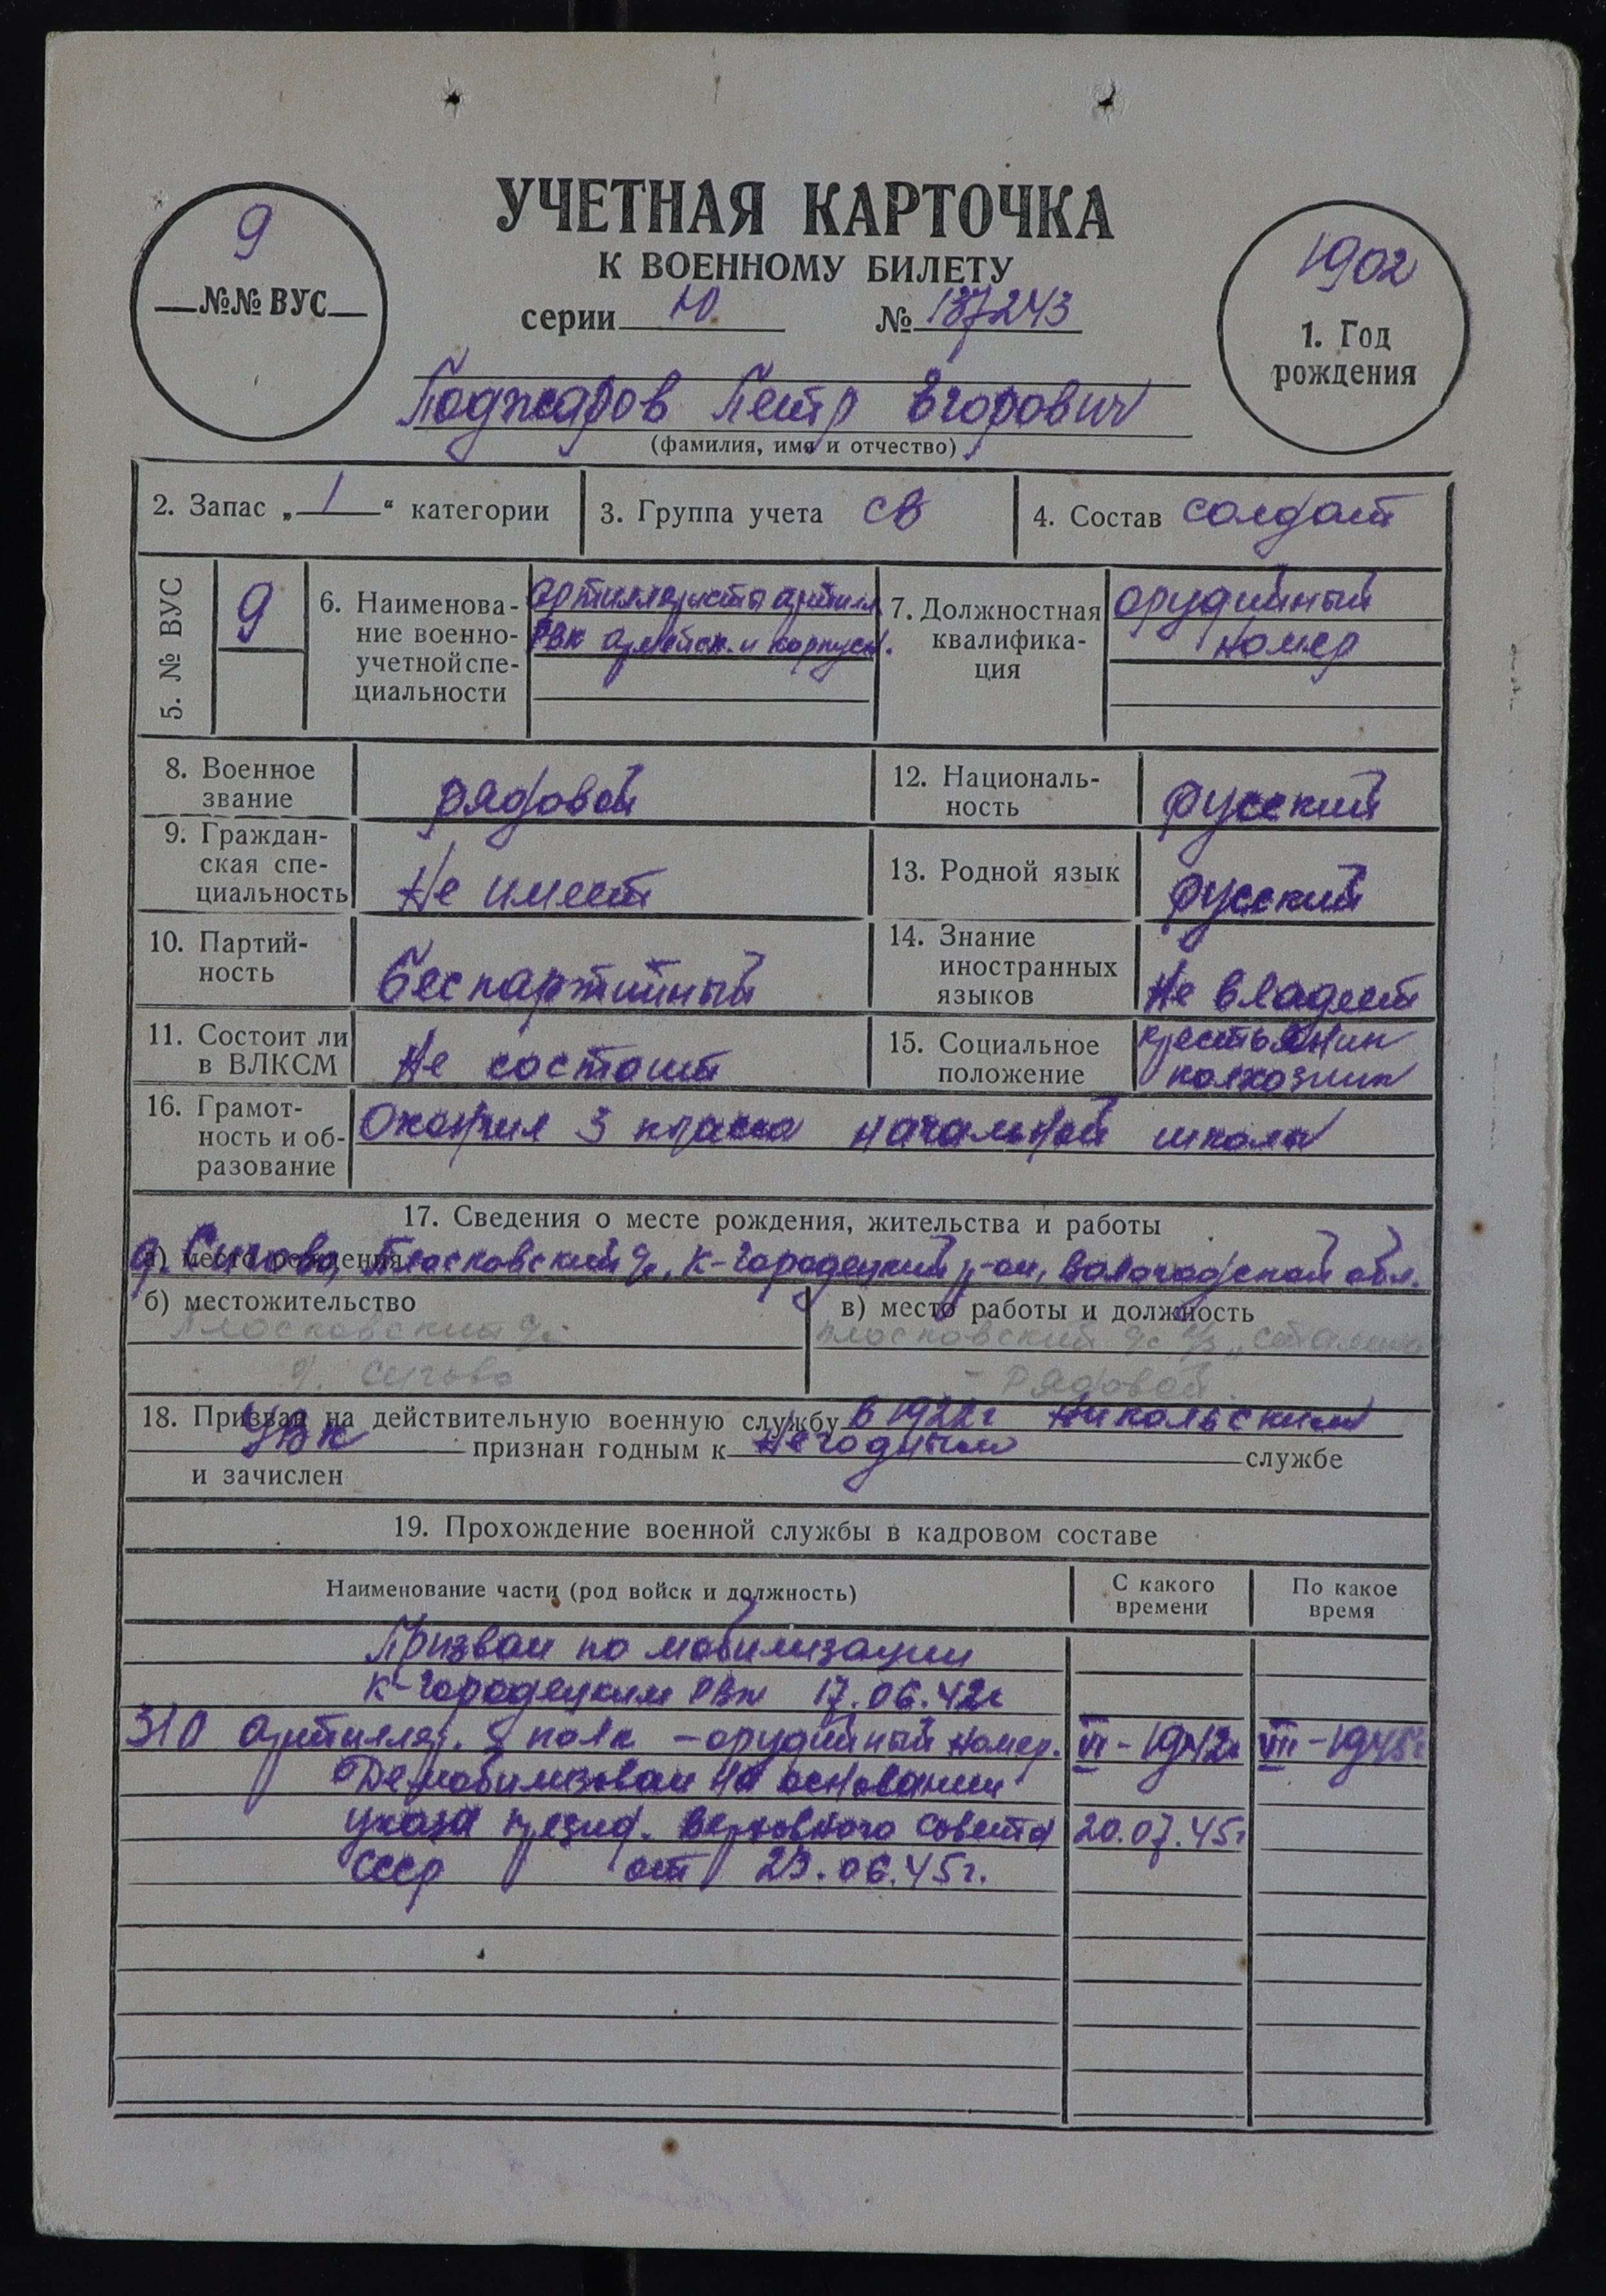 9
№№ ВУС
УЧЕТНАЯ КАРТОЧКА
К ВОЕННОМУ БИЛЕТУ
серии Ю № 137243
1902
1. Год
рождения
Поджаров Петр Егорович
(фамилия, имя и отчество)
2. Запас „ 1 “ категории
3. Группа учета СВ
4. Состав солдат
5. № ВУС
9
6. Наименова-
ние военно-
учетной спе-
циальности
артиллеристы артилл.
РВК армейск. и корпусн.
7. Должностная
квалифика-
ция
орудийный
номер
8. Военное
звание
рядовой
12. Националь-
ность
русский
9. Граждан-
ская спе-
циальность
Не имеет
13. Родной язык
русский
10. Партий-
ность
беспартийный
14. Знание
иностранных
языков
Не владеет
11. Состоит ли
в ВЛКСМ
Не состоит
15. Социальное
положение
крестьянин
колхозник
16. Грамот-
ность и об-
разование
Окончил 3 класса начальной школы
17. Сведения о месте рождения, жительства и работы
а) место рождения
д. Сычово, Плосковский с/с, К-Городецкий р-он, Вологодской обл.
б) местожительство
Плосковский с/с
д. Сычово
в) место работы и должность
Плосковский с/с к/з „Сталина
- рядовой.
18. Призван на действительную военную службу в 1922 г Никольским
УВК признан годным к Негодным службе
и зачислен
19. Прохождение военной службы в кадровом составе
Наименование части (род войск и должность)
С какого
времени
По какое
время
Призван по мобилизации
К-Городецким РВК 17.06.42г
310 артилляр. полк - орудийный номер. VI - 1942г VIII - 1945г
Демобилизован на основании
указа презид. Верховного Совета 20.07.45г
СССР от 23.06.45г.